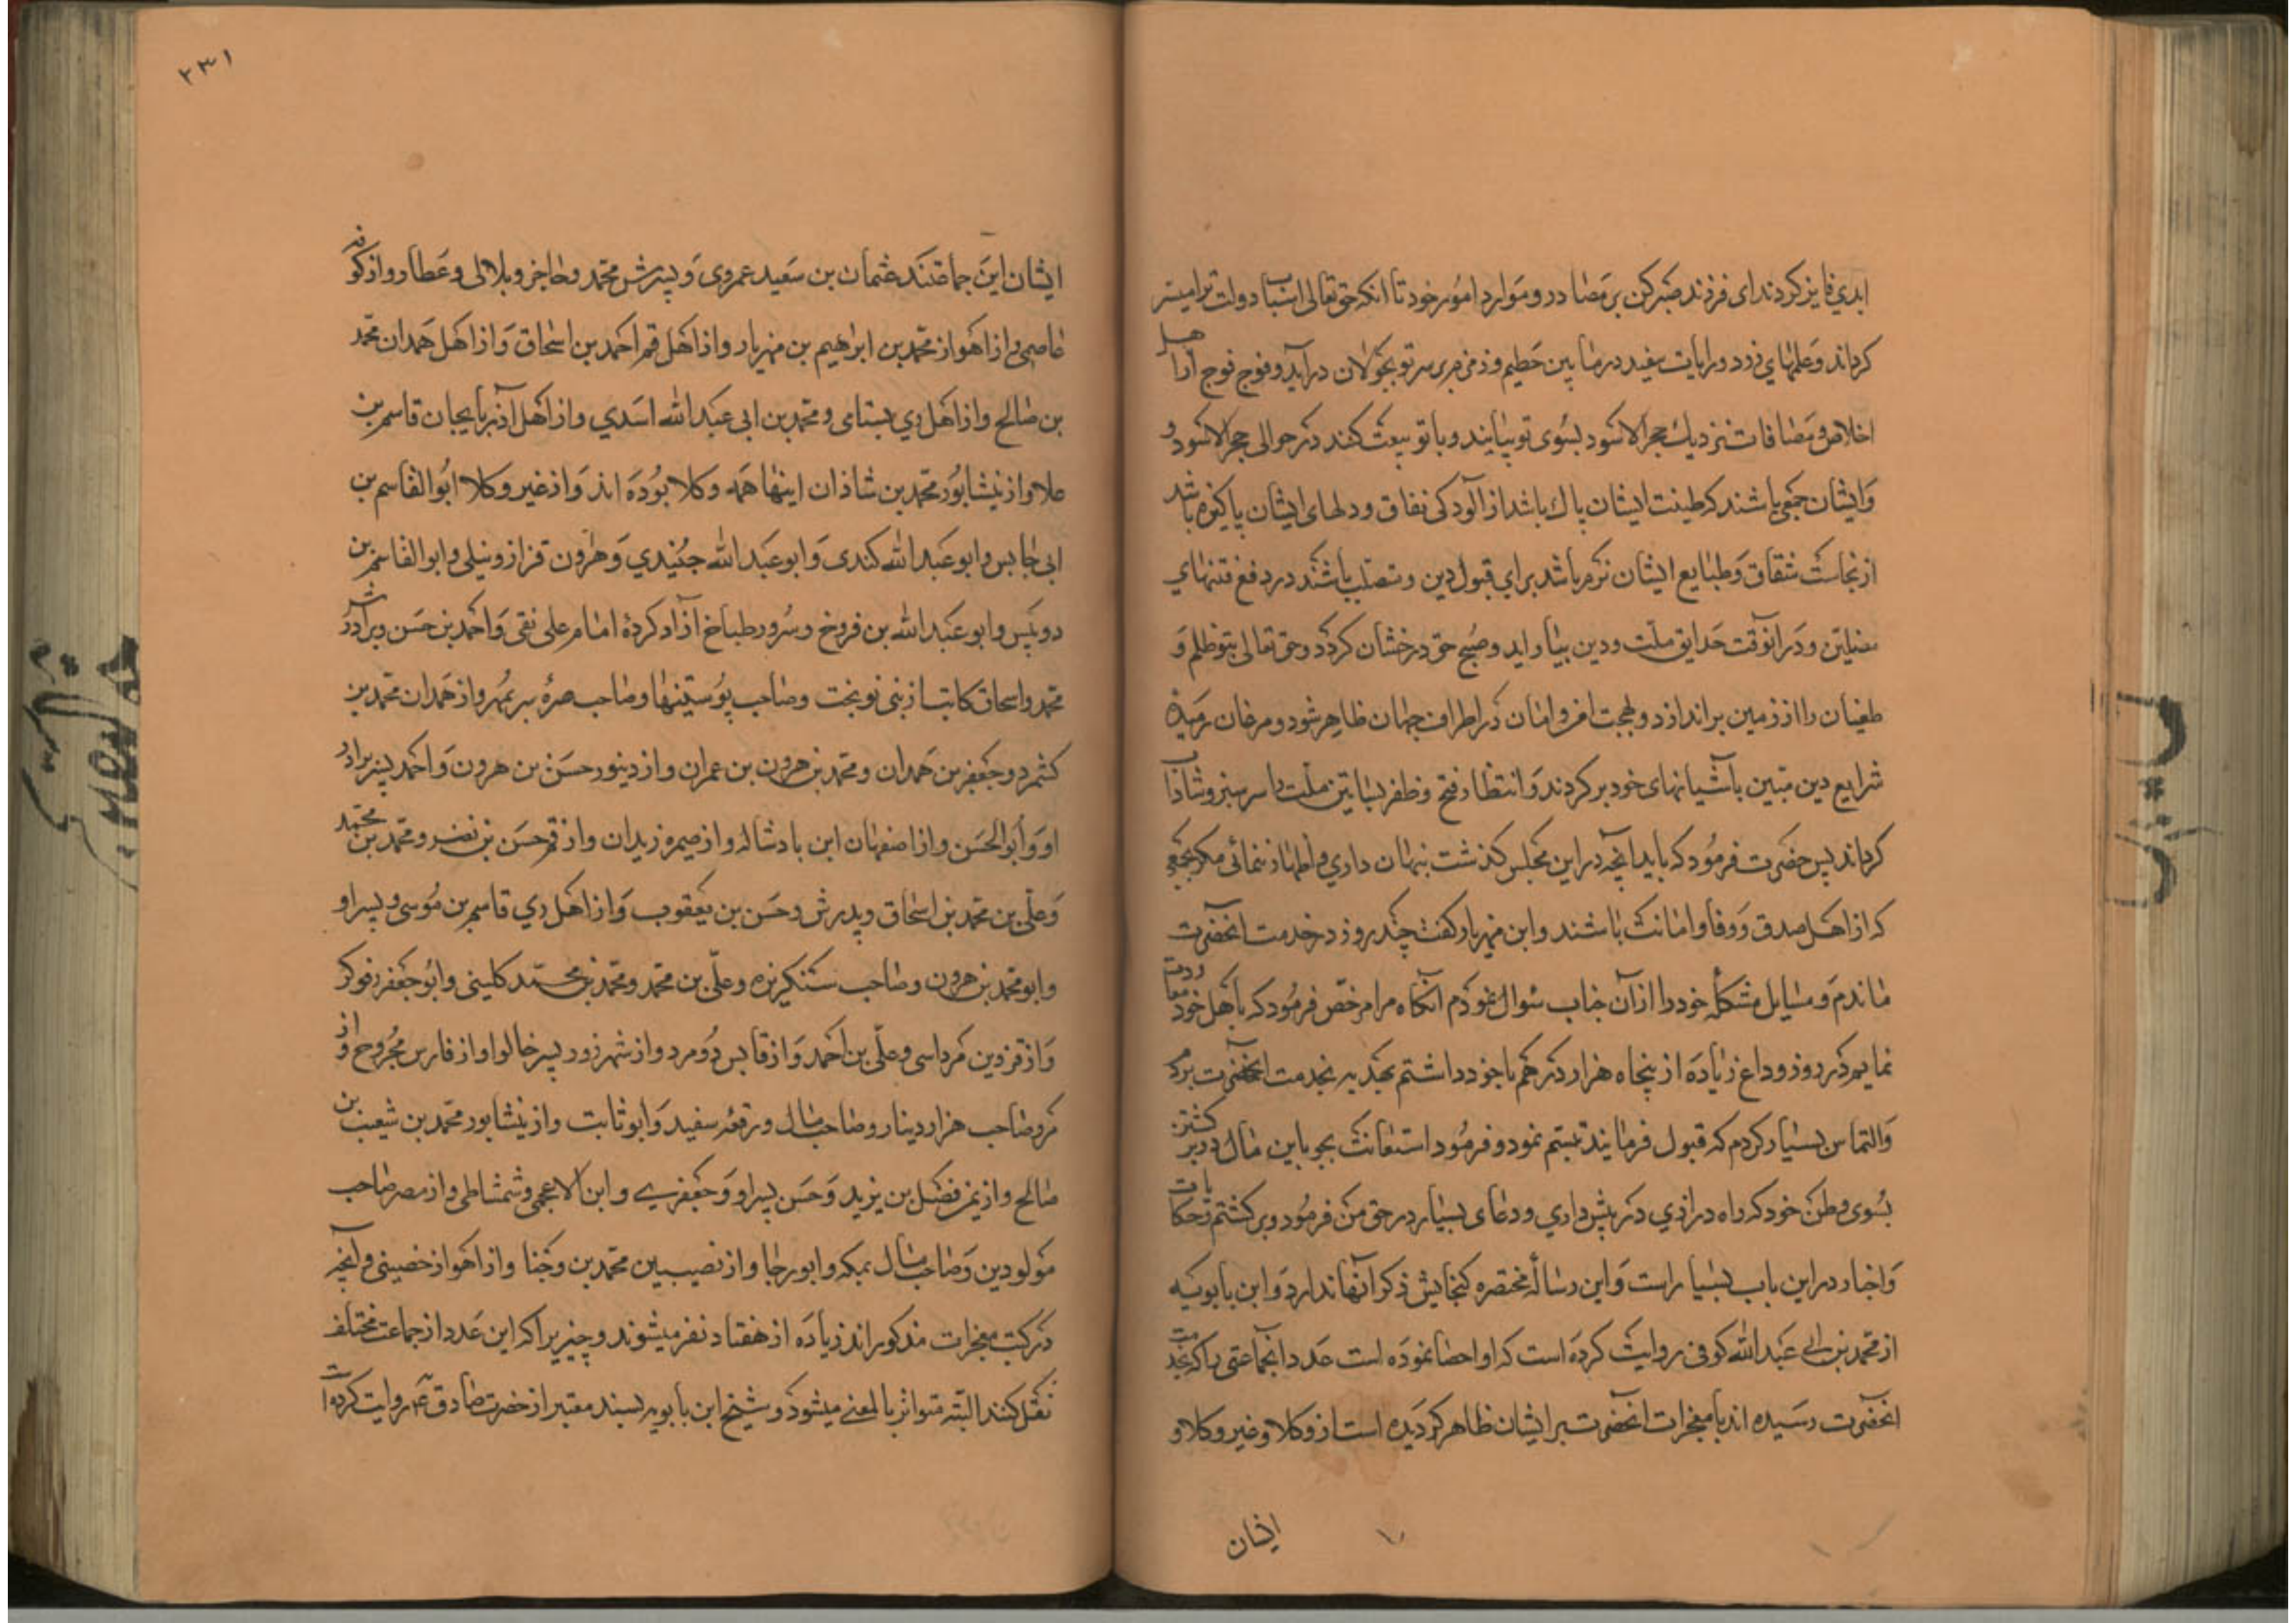 ابدی فایز کردند ای فرزند صبر کن بر مصادر و موارد امور خود تا آنکه حق تعالی اسباب دولت ترا میسر
کرداند و علمهای زرد و رایات سفید در مابین حطیم و زمزم بر سر تو بجولان درآید و فوج فوج از اهل
اخلاص و مصافات نزدیک حجر الاسود بسوی تو بیایند و با تو بیعت کنند در حوالی حجر الاسود و
و ایشان جمعی باشند که طینت ایشان پاک باشد از آلودکی نفاق و دلهای ایشان پاکیزه باشد
از نجاست شقاق و طبایع ایشان نرم باشد برای قبول دین و متصلب باشند در دفع فتنهای
مضلین و در آنوقت حدایق ملت و دین ببار آید و صبح حق درخشان کردد و حق تعالی بتو ظلم و
طغیان را از زمین براندازد و بهجت امن و امان در اطراف جهان ظاهر شود و مرغان رمیدۀ
شرایع دین مبین بآشیانهای خود برکردند و انتظار فتح و ظفر بساتین ملت را سرسبز و شاداب
کرداند پس حضرت فرمود که باید آنچه در این مجلس کذشت پنهان داری و اظهار ننمائی مکر بجمعی
که از اهل صدق و وفا و امانت باشند و ابن مهزیار کفت چند روز در خدمت آنحضرت
ماندم و مسایل مشکلۀ خود را از آن جناب سوال نمودم آنکاه مرا مرخص فرمود که باهل خود معاودت
نمایم در روز وداع زیاده از پنجاه هزار درهم با خود داشتم بهدیه بخدمت آنحضرت بردم
و التماس بسیار کردم که قبول فرمایند تبسم نمود و فرمود استعانت بجو باین مال در برکشتن
بسوی وطن خود که راه درازی در پیش داری و دعای بسیار در حق من فرمود و برکشتم و حکایات
و اخبار در این باب بسیار است و این رسالۀ مختصره کنجایش ذکر آنها ندارد و ابن بابویه
از محمد بن ابی عبدالله کوفی روایت کرده است که او احصا نموده است عدد آنجماعتی را که بخدمت
آنحضرت رسیده اند یا معجزات آنحضرت بر ایشان ظاهر کردیده است از وکلا و غیر وکلا و
ایشان
۲۳۱
ایشان این جماعتند عثمان بن سعید عمروی و پسرش محمد و حاجز و بلالی و عطار و از کوفه
عاصمی و از اهواز محمد بن ابراهیم بن مهزیار و از اهل قم احمد بن اسحاق و از اهل همدان محمد
بن صالح و از اهل ری بستامی و محمد بن ابی عبدالله اسدی و از اهل آذربایجان قاسم بن
علا و از نیشابور محمد بن شاذان اینها همه وکلا بوده اند و از غیر وکلا ابوالقاسم بن
ابی حابس و ابو عبدالله کندی و ابو عبدالله جنیدی و هارون قزاز و نیلی و ابوالقاسم بن
دوبیس و ابو عبدالله بن فروخ و سرور طباخ آزاد کردۀ امام علی نقی و احمد بن حسن و برادرش
محمد و اسحاق کاتب از بنی نوبخت و صاحب پوستینها و صاحب صرۀ سر بمهر و از همدان محمد بن
کشمرد و جعفر بن حمدان و محمد بن هرون بن عمران و از دینور حسن بن هرون و احمد پسر برادر
او و ابوالحسن و از اصفهان ابن بادشاله و از صیمره زیدان و از قم حسن بن نضر و محمد بن محمد
و علی بن محمد بن اسحاق و پدرش و حسن بن یعقوب و از اهل ری قاسم بن موسی و پسر او
و ابو محمد بن هرون و صاحب سنکریزه و علی بن محمد و محمد بن محمد کلینی و ابو جعفر رفوکر
و از قزوین مرداسی و علی بن احمد و از قابس دو مرد و از شهرزور پسر خالو او از فارس مجروح و از
مرو صاحب هزار دینار و صاحب مال و رقعه سفید و ابو ثابت و از نیشابور محمد بن شعیب بن
صالح و از یمن فضل بن یزید و حسن پسر او و جعفری و ابن الاعجمی و شمشاطی و از مصر صاحب
مولودین و صاحب مال بمکه و ابو رجا و از نصیبین محمد بن وجنا و از اهواز خصینی و آنچه
در کتب معجزات مذکوراند زیاده از هفتاد نفر میشوند و چیزیرا که این عدد از جماعت مختلف
نقل کنند البته متواتر بالمعنی میشود و شیخ ابن بابویه بسند معتبر از حضرت صادق ع روایت کرده است